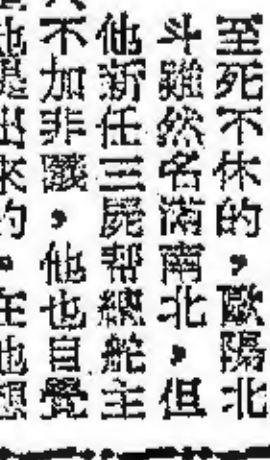 至死不休的，歐陽北
斗雖然名滿南北，但
他新任三屍幫總舵主
不加非議，他也自覺